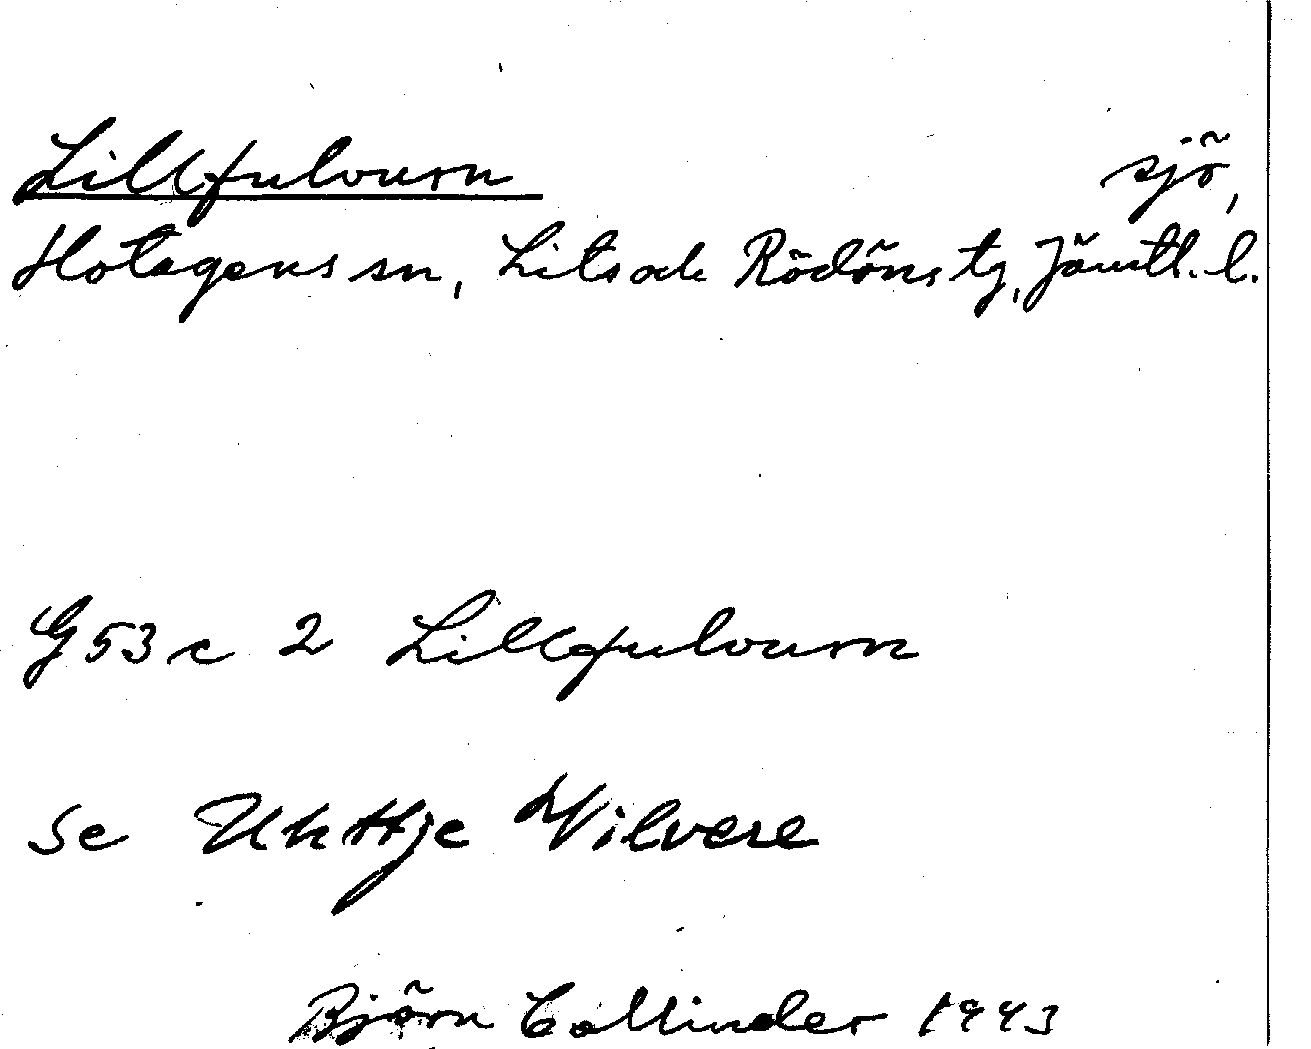 Lillfulvurn sjö,
Hotagens sn, Lits och Rödöns tg, Jämtl. l.
G 53 c 2 Lillfulvurn
se Uhttje Vilvere
Björn Collinder 1943